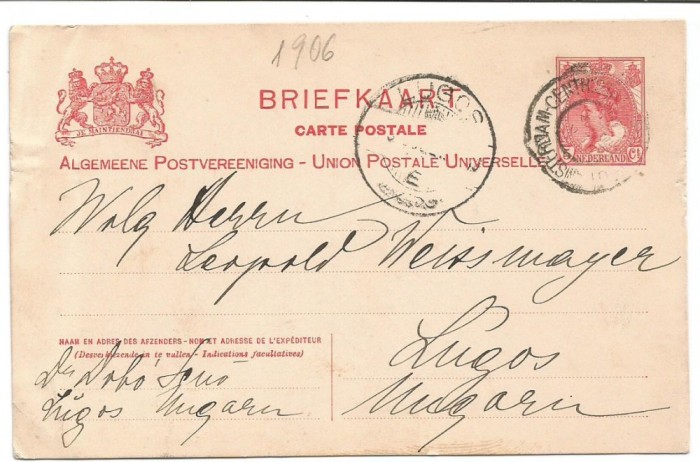 1906
JE MAINTIENDRAI
BRIEFKAART
CARTE POSTALE
ALGEMEENE POSTVEREENIGING - UNION POSTALE UNIVERSELLE
AMSTERDAM-CENTR
NEDERLAND
LUGOS
Wolg Herrn
Leopold Weissmayer
NAAM EN ADRES DES AFZENDERS - NOM ET ADRESSE DE L'EXPÉDITEUR
(Desverkiezende in te vullen - Indications facultatives)
Dr Dobó Jenő
Lugos Ungarn
Lugos
Ungarn